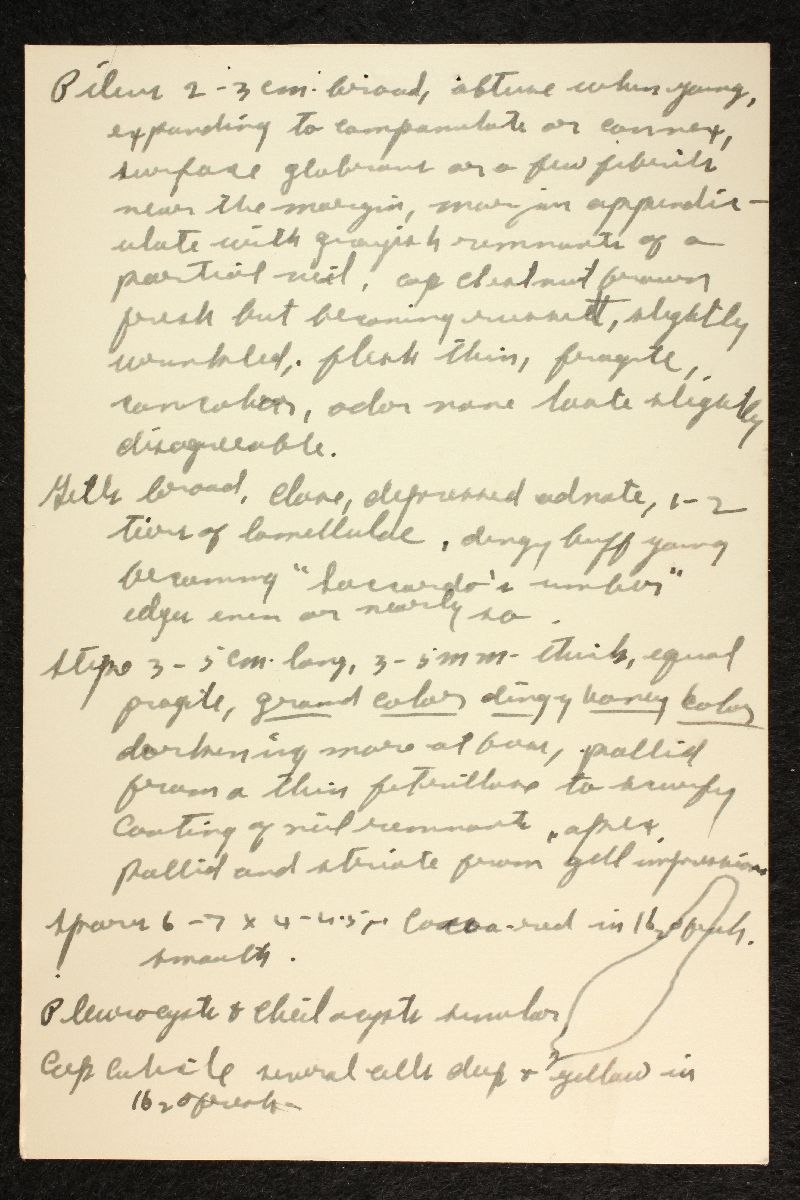 Pileus 2-3 cm. broad, obtuse when young,
expanding to campanulate or convex,
surface glabrous or a few fibrils
near the margin, margin appendic-
ulate with grayish remnants of a
partial veil, cap chestnut brown
fresh but becoming russett, slightly
wrinkled, flesh thin, fragile,
concolor, odor none taste slightly
disagreeable.
Gills broad, close, depressed adnate, 1-2
tiers of lamellulae, dingy buff young
becoming "Saccardo's umber"
edges even or nearly so.
Stipe 3-5 cm. long, 3-5 mm. thick, equal
fragile, ground color dingy honey color
darkening more at base, pallid
from a thin fibrillose to scurfy
coating of veil remnants, apex
pallid and striate from gill impressions
Spores 6-7 x 4-4.5 µ cocoa-red in H2O fresh.
smooth.
Pleurocysts & cheilocysts similar
Cap cuticle several cells deep & yellow in
H2O fresh-